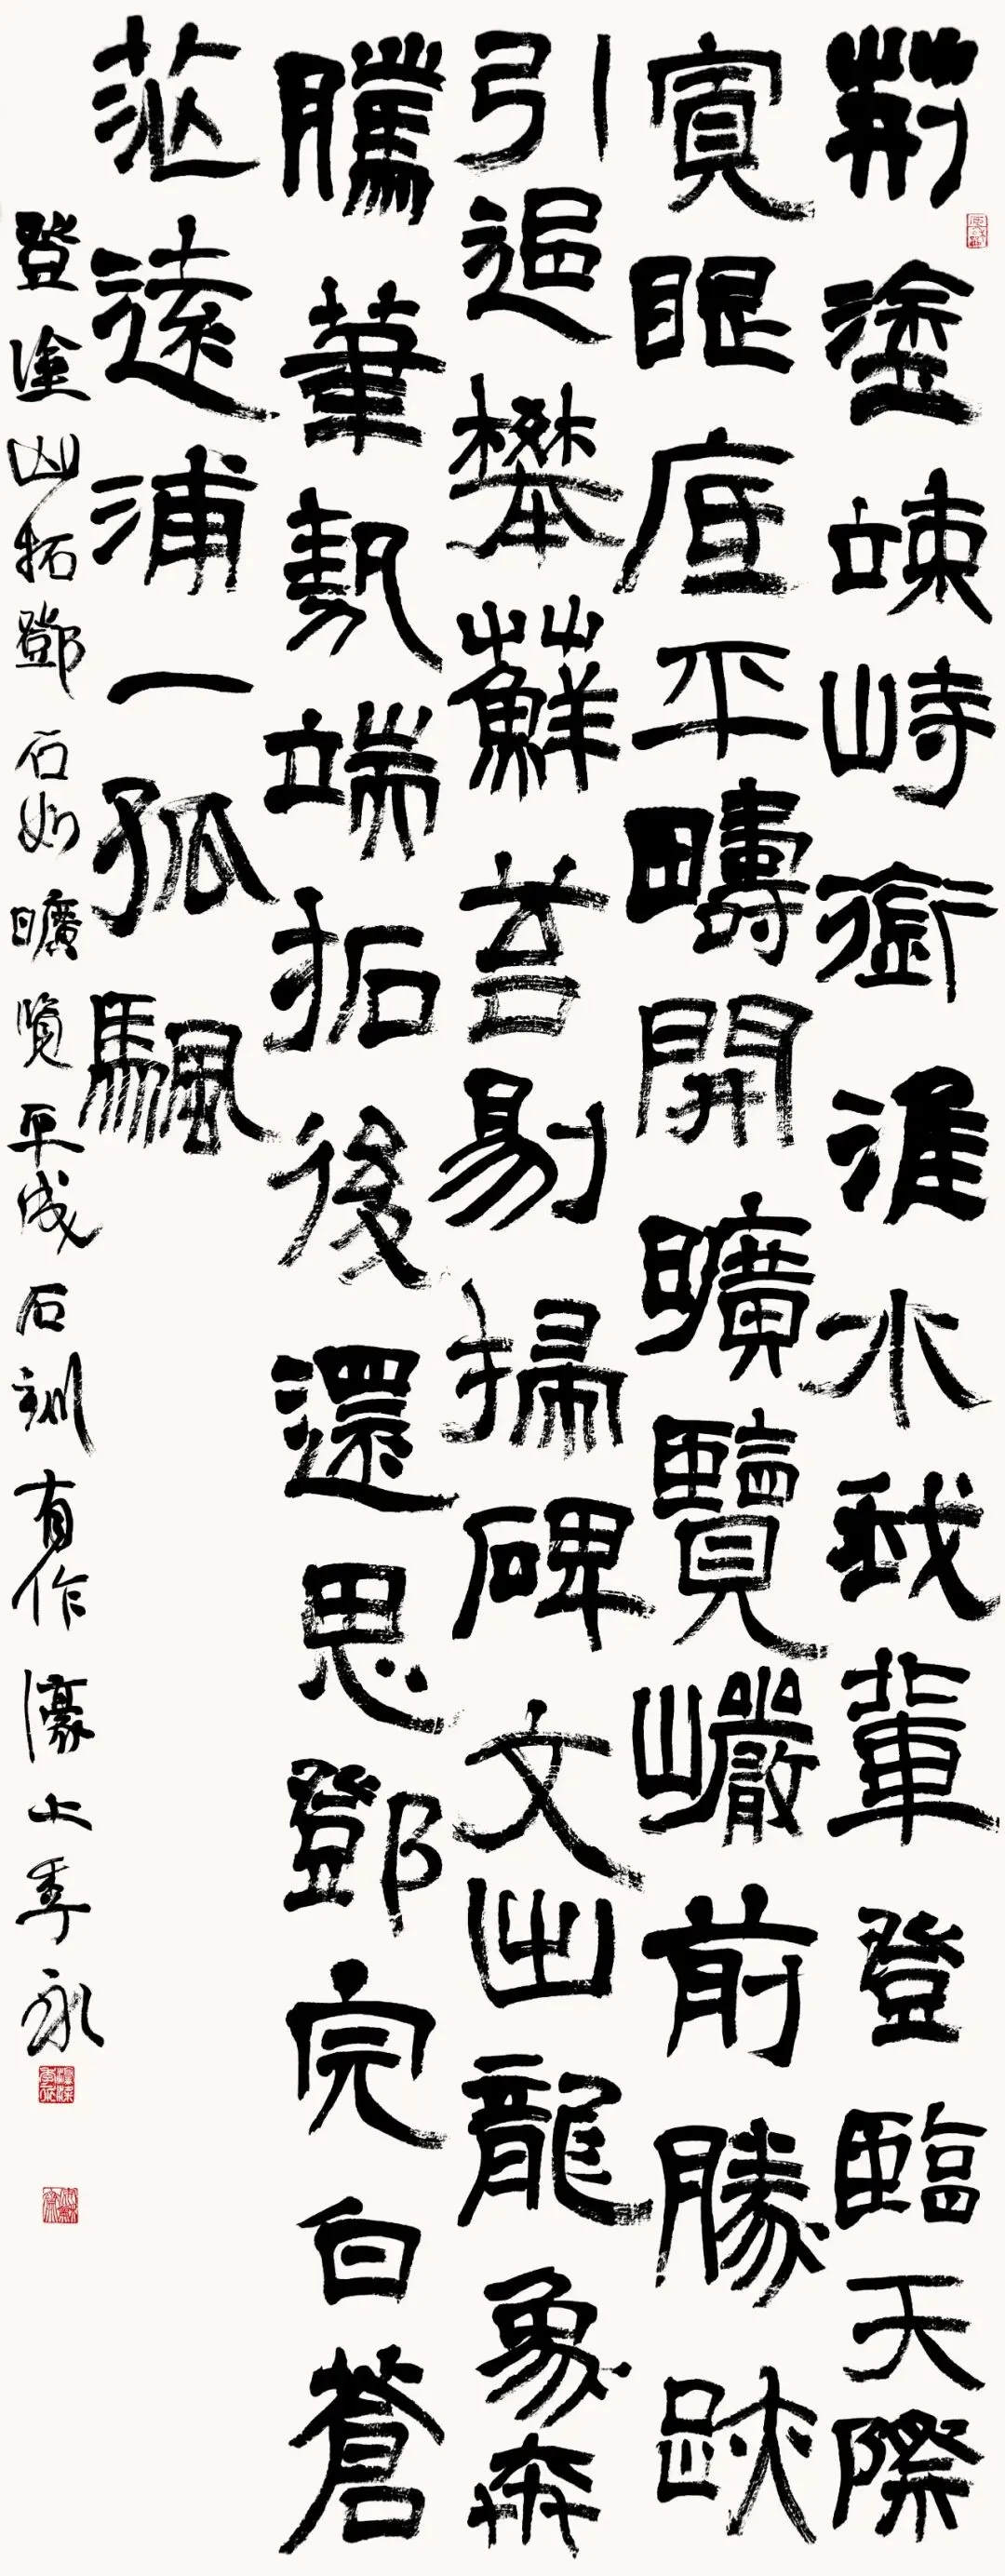 荆塗竦峙銜淮水我輩登臨天際
寬眼底平疇開曠覽巖前勝跡
引追攀蘚苔剔掃碑文出龍象奔
騰筆勢端拓後還思鄧完白蒼
茫遠浦一孤颿
登塗山拓鄧石如曠覽平成石刻有作濠上季永